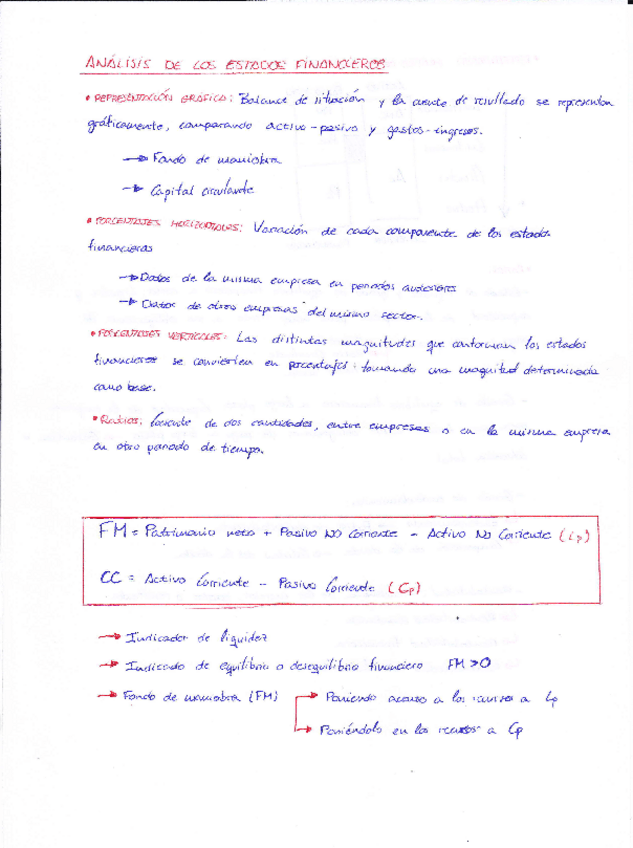 ANÁLISIS DE LOS ESTADOS FINANCIEROS
• REPRESENTACIÓN GRÁFICA: Balance de situación y la cuenta de resultado se representan
gráficamente, comparando activo - pasivo y gastos - ingresos.
→ Fondo de maniobra
→ Capital circulante
• PORCENTAJES HORIZONTALES: Variación de cada componente de los estados
financieros
→ Datos de la misma empresa en periodos anteriores
→ Datos de otras empresas del mismo sector.
• PORCENTAJES VERTICALES: Las distintas magnitudes que conforman los estados
financieros se convierten en porcentajes tomando una magnitud determinada
como base.
• Ratios: Cociente de dos cantidades, entre empresas o en la misma empresa
en otro periodo de tiempo.
FM = Patrimonio neto + Pasivo NO Corriente - Activo No Corriente (Lp)
CC = Activo Corriente - Pasivo Corriente (Cp)
→ Indicador de liquidez
→ Indicado de equilibrio o desequilibrio financiero FM > 0
→ Fondo de maniobra (FM) → Poniendo acento a los recursos a Lp
→ Poniéndolo en los recursos a Cp